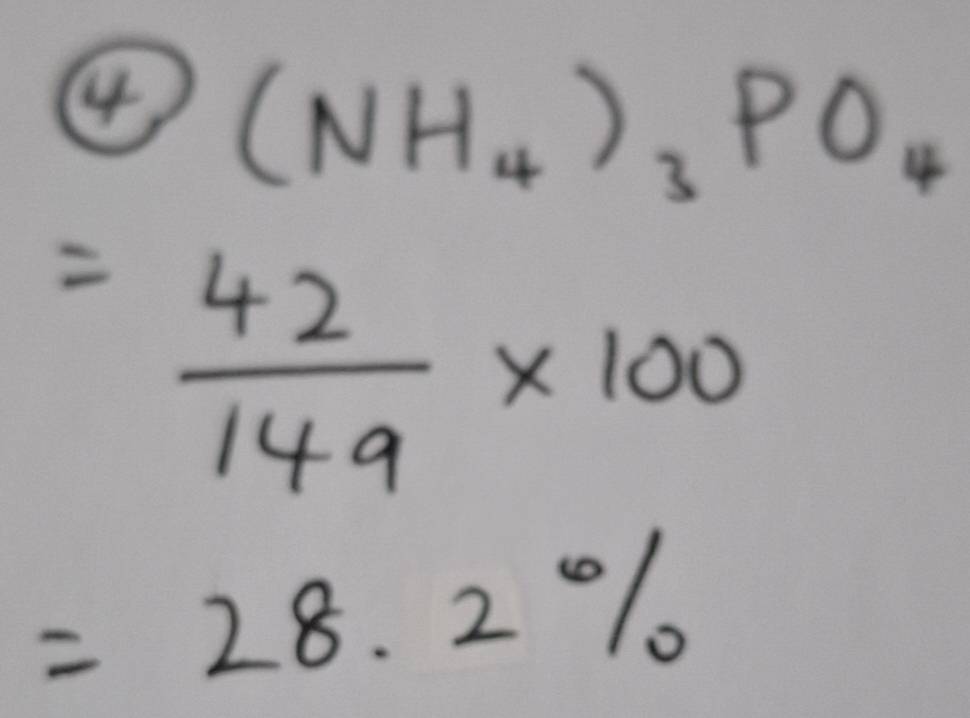 ④ (NH₄)₃PO₄
= 42/149 × 100
= 28.2%